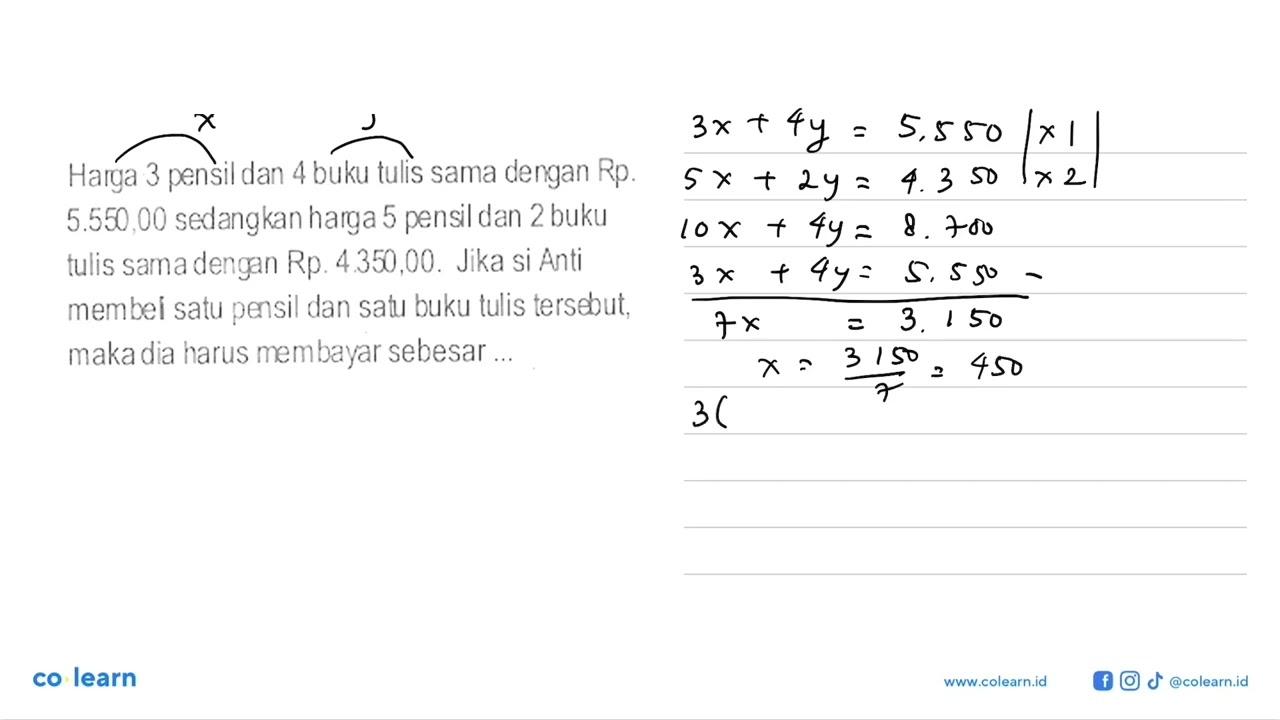 x y
Harga 3 pensil dan 4 buku tulis sama dengan Rp.
5.550,00 sedangkan harga 5 pensil dan 2 buku
tulis sama dengan Rp. 4.350,00. Jika si Anti
membeli satu pensil dan satu buku tulis tersebut,
maka dia harus membayar sebesar ...
3x + 4y = 5.550 | x 1 |
5x + 2y = 4.350 | x 2 |
10x + 4y = 8.700
3x + 4y = 5.550 -
7x = 3.150
x = 3150/7 = 450
3(
co learn
www.colearn.id @colearn.id